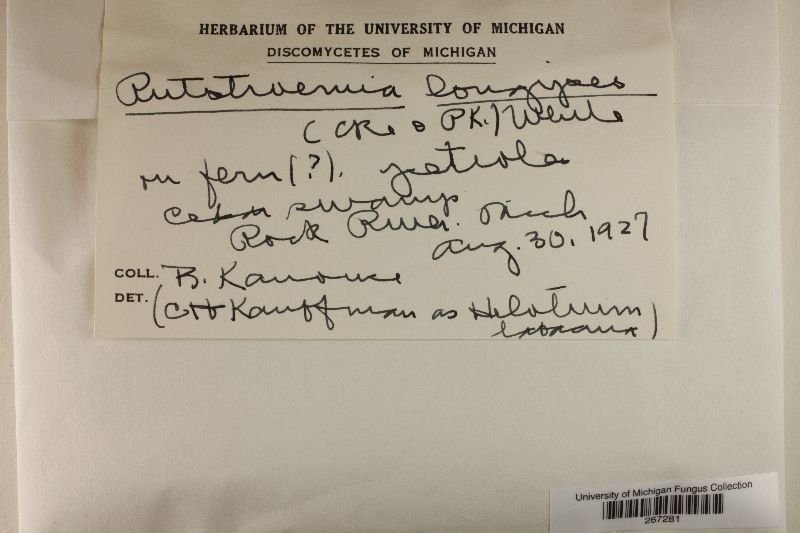 HERBARIUM OF THE UNIVERSITY OF MICHIGAN
DISCOMYCETES OF MICHIGAN
Rutstroemia longipes
(CK. & PK.) White
on fern (?). petiole
swamp
Rock River. Mich
Aug. 30, 1927
COLL. B. Kanouse
DET. (CH Kauffman as Helotium
)
University of Michigan Fungus Collection
267281